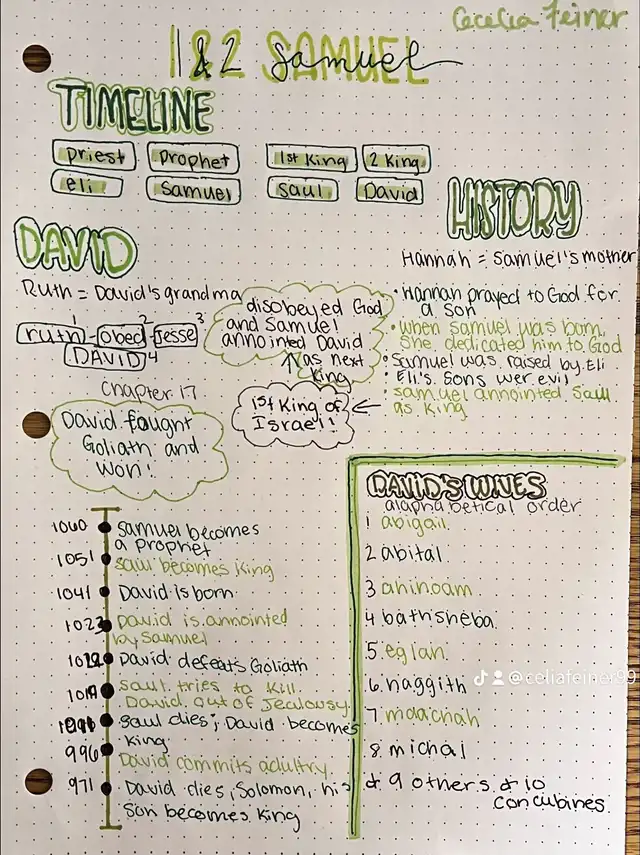 Cecelia Feiner
1 & 2 SAMUEL
Samuel
TIMELINE
priest prophet 1st King 2 King
eli Samuel Saul David
HISTORY
Hannah = Samuel's mother
• Hannah prayed to God for
a son
• when samuel was born,
she dedicated him to God
• Samuel was raised by Eli
• Eli's sons wer evil
samuel annointed Saul
as king
DAVID
Ruth = David's grandma
1 2 3
ruth - obed - Jesse
DAVID 4
disobeyed God
and Samuel
annointed David
as next
king
1st King of
Israel!
Chapter 17
David fought
Goliath and
won!
1060 Samuel becomes
a Prophet
1051 saul becomes king
1041 David is born
1023 David is annointed
by Samuel
David defeats Goliath
Saul tries to kill
David out of Jealousy
Saul dies; David becomes
King
996 David commits adultry
971 David dies, Solomon, his
son becomes King
DAVID'S WIVES
alaphabetical order
1 abigail
2 abital
3 ahinoam
4 bathsheba
5 eglan
6 haggith
7 maachah
8 michal
& 9 others & 10
concubines
@celiafeiner99